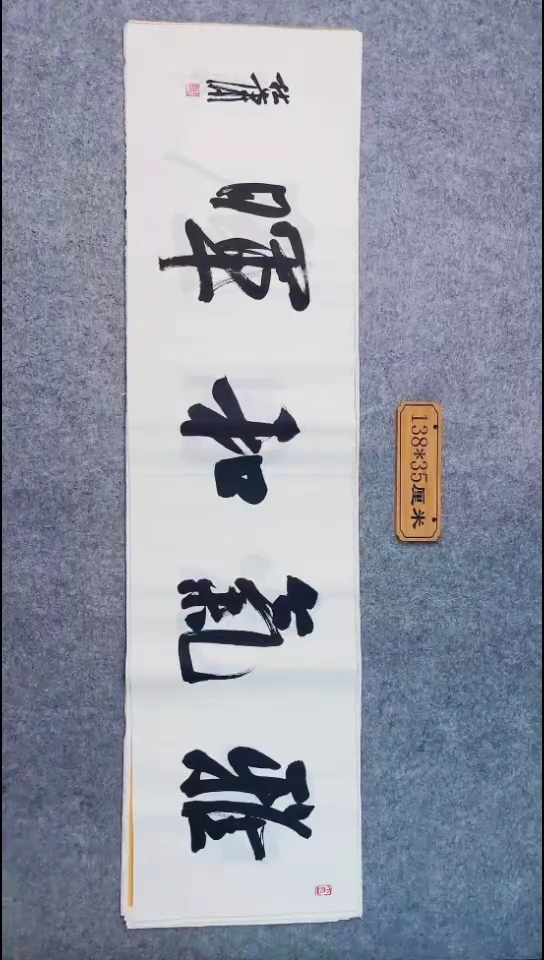 雅氣和暉
138*35厘米